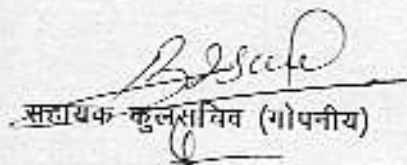 सहायक कुलसचिव (गोपनीय)